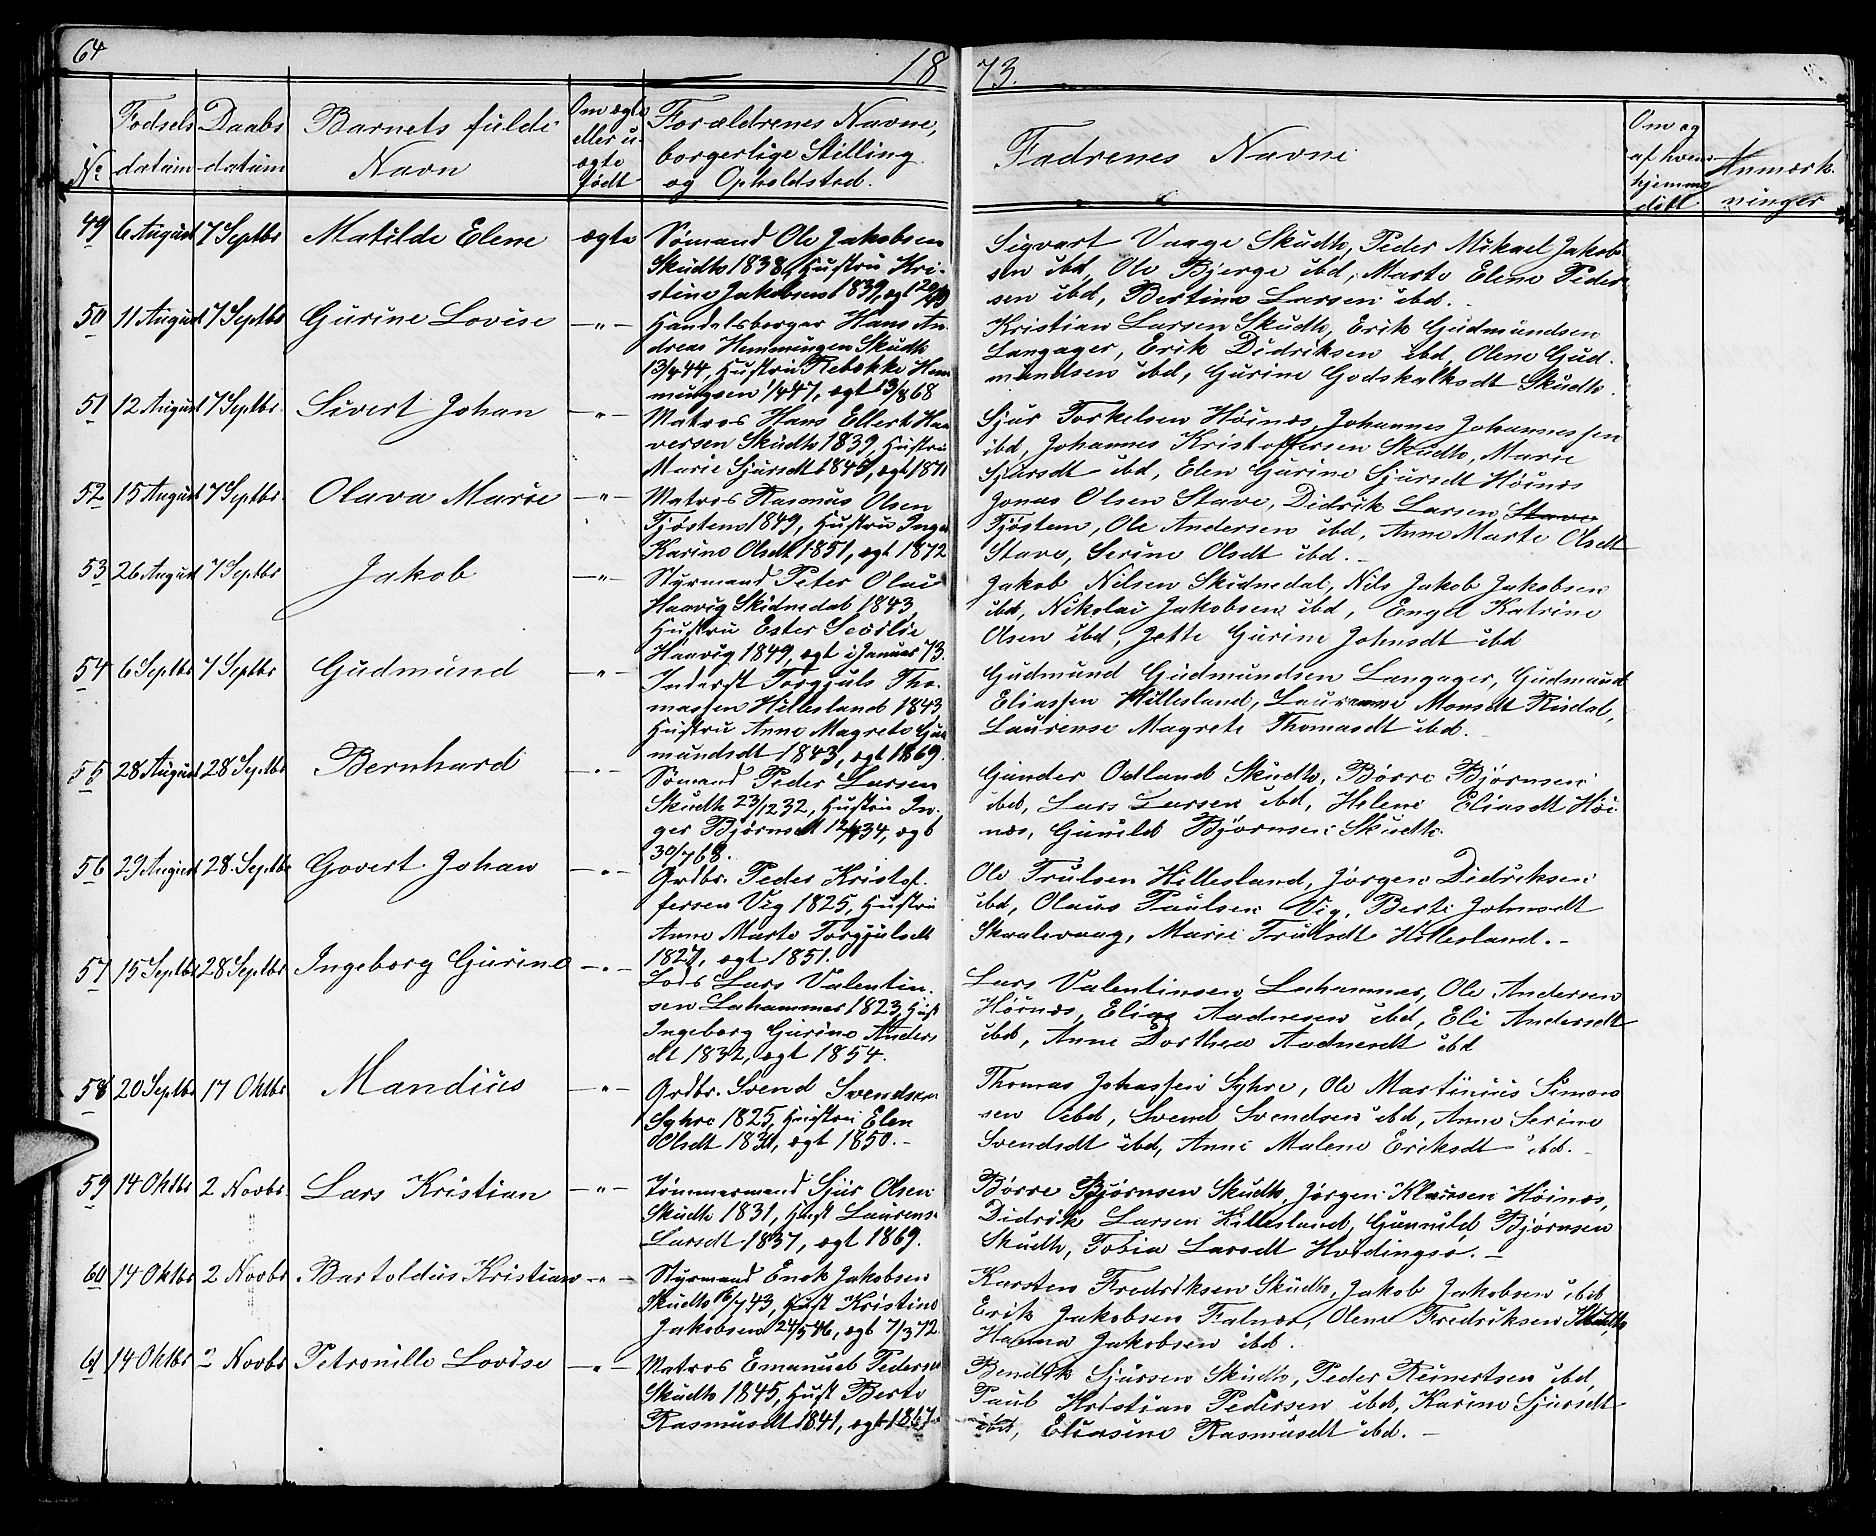 64
18 73.
No
Fødsels datum
Daabs datum
Barnets fulde Navn
Om ægte eller uægte født
Forældrenes Navne, borgerlige Stilling og Opholdsted.
Fadrenes Navne
Om og af hvem hjemmedøbt
Anmærkninger
49 6 August 7 Septbr Matilde Elene ægte
Sømand Ole Jakobsen
Skudh 1838, Hustru Kri-
stine Jakobsen 1839, ægt
Sigvart Vaage Skudh, Peder Mikael Jakob-
sen ibd, Ole Bjerge ibd, Marte Elene Peder-
sen ibd, Bertine Larsen ibd.
50 11 August 7 Septbr Gurine Lovise -"-
Handelsborger Hans An
dreas Hemmingsen Skudh
13/4 44, Hustru Rebekke Hem
mingsen 1/4 47, ægt 13/8 68
Kristian Larsen Skudh, Erik Gudmundsen
Langager, Erik Didriksen ibd, Olene Gud-
mundsen ibd, Gurine Godskalksdt Skudh.
51 12 August 7 Septbr. Sivert Johan -"-
Matros Hans Ellert Haa
versen Skudh 1839, Hustru
Marie Sjursdt 1845, ægt 1871
Sjur Torkelsen Høinæs, Johannes Johannessen
ibd, Johannes Kristoffersen Skudh, Marie
Sjursdt ibd, Elen Gurine Sjursdt Høinæs
52 15 August 7 Septbr. Olava Marie -"-
Matros Rasmus Olsen
Tjøstem 1849, Hustru Inger
Karine Olsdt 1851, ægt 1872
Jonas Olsen Stave, Didrik Larsen Stave
Tjøstem, Ole Andersen ibd, Anne Marte Olsdt
Stave, Serine Olsdt ibd.
53 26 August 7 Septbr Jakob -"-
Styrmand Peter Olai
Haavig Skidnedal 1843,
Hustru Ester Seville
Haavig 1849, ægt i Januar 73.
Jakob Nilsen Skidnedal, Nils Jakob Jakobsen
ibd, Nikolai Jakobsen ibd, Engel Katrine
Olsen ibd, Jette Gurine Johnsdt ibd
54 6 Septbr 7 Septbr Gudmund -"-
Inderst Torgjuls Tho-
massen Hillesland 1843
Hustru Anne Magrete Gud
mundsdt 1843, ægt 1869.
Gudmund Gudmundsen Langager, Gudmund
Eliassen Hillesland, Laurense Monsdt Risdal,
Laurense Magrete Thomasdt ibd.
55 28 August 28 Septbr Bernhard -"-
Sømand Peder Larsen
Skudh 23/12 32, Hustru In-
ger Bjørnsdt 12/4 34, ægt
30/7 68.
Gunder Østland Skudh, Børre Bjørnsen
ibd, Lars Larsen ibd, Helene Eliasdt Høi-
næs, Gunild Bjørnsen Skudh.
56 29 August 28. Septbr Govert Johan -"-
Grdbr. Peder Kristof-
fersen Vig 1825, Hustru
Anne Marte Torgjulsdt
1827, ægt 1851.
Ole Trulsen Hillesland, Jørgen Didriksen
ibd, Olaus Paulsen Vig, Berte Johnsdt
Skaalevaag, Marie Trulsdt Hillesland.-
57 15 Septbr 28 Septbr Ingeborg Gurine -"-
Lods Lars Valentin-
sen Lahammer 1823, Hust
Ingeborg Gurine Anders
dt 1832, ægt 1854.
Lars Valentinsen Lahammer, Ole Andersen
Hørnæs, Elias Aadnesen ibd, Eli Andersdt
ibd, Anne Dorthea Aadnesdt ibd
58 20 Septbr 17 Oktbr Mandius -"-
Grdbr. Svend Svendsen
Syhre 1825, Hustru Elen
Olsdt 1830, ægt 1850.-
Thomas Johassen Syhre, Ole Martinius Simon
sen ibd, Svend Svendsen ibd, Anne Serine
Svendsdt ibd, Anne Malene Eriksdt ibd.
59 14 Oktbr 2 Novbr. Lars Kristian -"-
Tømmermand Sjur Olsen
Skudh 1831, Hust Laurense
Larsdt 1837, ægt 1869.
Børre Bjørnsen Skudh, Jørgen Klausen Høinæs,
Didrik Larsen Hillesland, Gunnild Bjørnsen
Skudh, Tobia Larsdt Hvidingsø.-
60 14 Oktbr 2 Novbr Bartoldus Kristian -"-
Styrmand Enok Jakobsen
Skudh 16/7 43, Hust Kristine
Jakobsen 24/5 46, ægt 7/3 72
Karsten Fredriksen Skudh, Jakob Jakobsen ibd
Erik Jakobsen Falnæs, Olene Fredriksen Skudh
Hanna Jakobsen ibd.
61 14 Oktbr 2 Novbr Petronille Lovise -"-
Matros Emanuel Pedersen
Skudh 1845, Hust Berte
Rasmusdt 1841, ægt 1867.
Bendik Sjursen Skudh, Peder Reinertsen ibd,
Paul Kristian Pedersen ibd, Karine Sjursdt
ibd, Eliasine Rasmusdt ibd.-